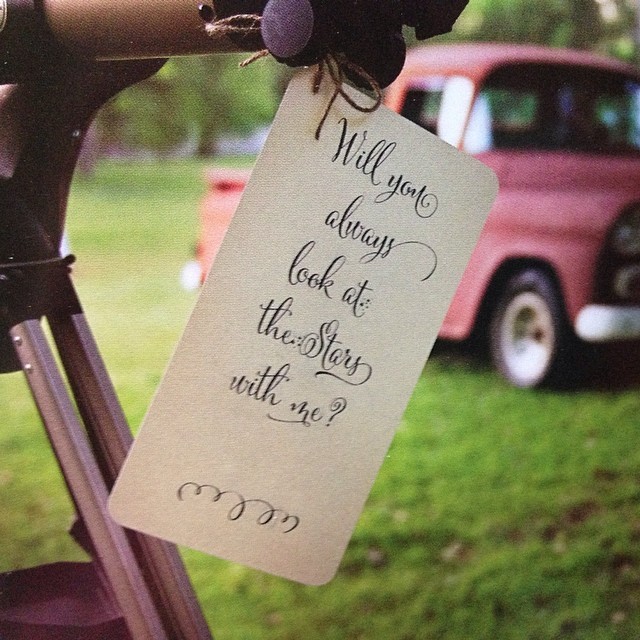 Will you
always
look at
the Stars
with me?